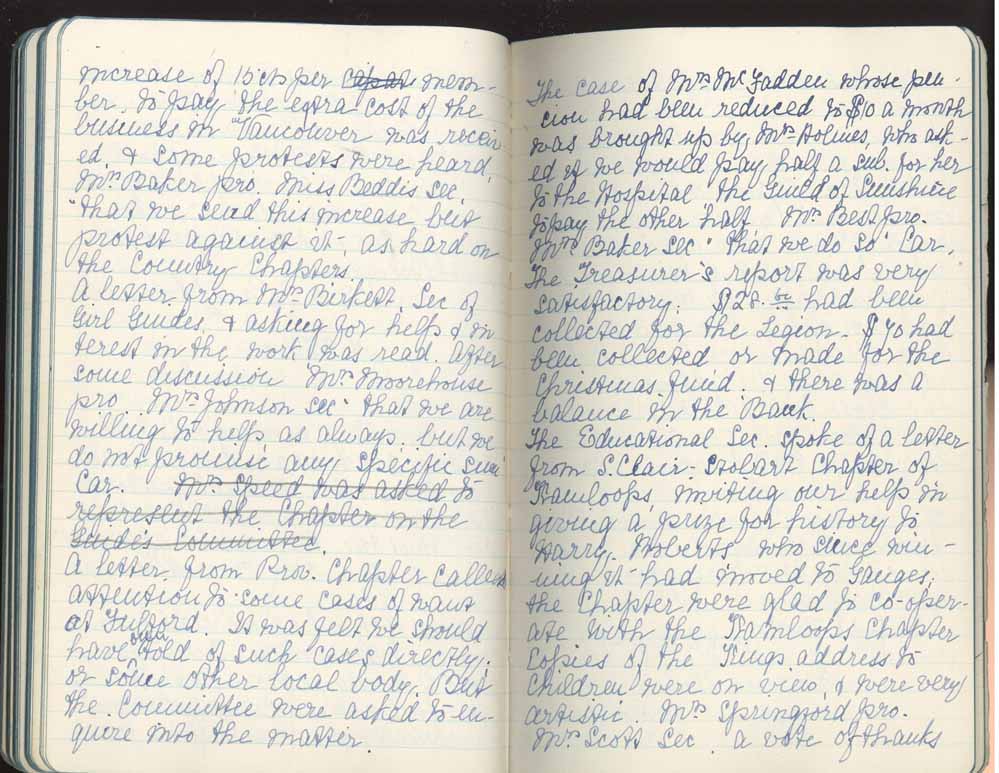 increase of 15 cts per capat mem-
ber, to pay the extra cost of the
business in "Vancouver was receiv
ed, & some protests were heard,
Mrs Baker pro. Miss Beddis sec.
"that we send this increase but
protest against it, as hard on
the Country Chapters.
A letter from Mrs Birkett, Sec of
Girl Guides, & asking for help & in
terest in the work was read. After
some discussion Mrs Moorehouse
pro Mrs Johnson sec "that we are
willing to help as always. but we
do not promise any specific sum
Car. Mrs Speed was asked to
represent the Chapter on the
Guides Committee.
A letter from Prov. Chapter called
attention to some cases of want
at Fulford. It was felt we should
have told of such cases directly,
or some other local body. But
the Committee were asked to en-
quire into the matter.
The case of Mrs McFadden whose pen-
cion had been reduced to $10 a month
was brought up by Mrs Holmes, who ask-
ed if we would pay half a sub. for her
to the Hospital the Guild of Sunshine
to pay the other half. Mrs Best pro.
Mrs Baker sec "that we do so" Car.
The Treasurer's report was very
satisfactory. $28. had been
collected for the Legion. $70 had
been collected or made for the
Christmas Fund. & there was a
balance in the Bank.
The Educational Sec. spoke of a letter
from S. Clair-Stobart Chapter of
Kamloops, inviting our help in
giving a prize for history to
Harry Roberts who since win-
ning it had moved to Ganges,
the Chapter were glad to co-oper-
ate with the Kamloops Chapter
Copies of the Kings address to
Children were on view, & were very
artistic. Mrs Springford pro.
Mrs Scott Sec. a vote of thanks